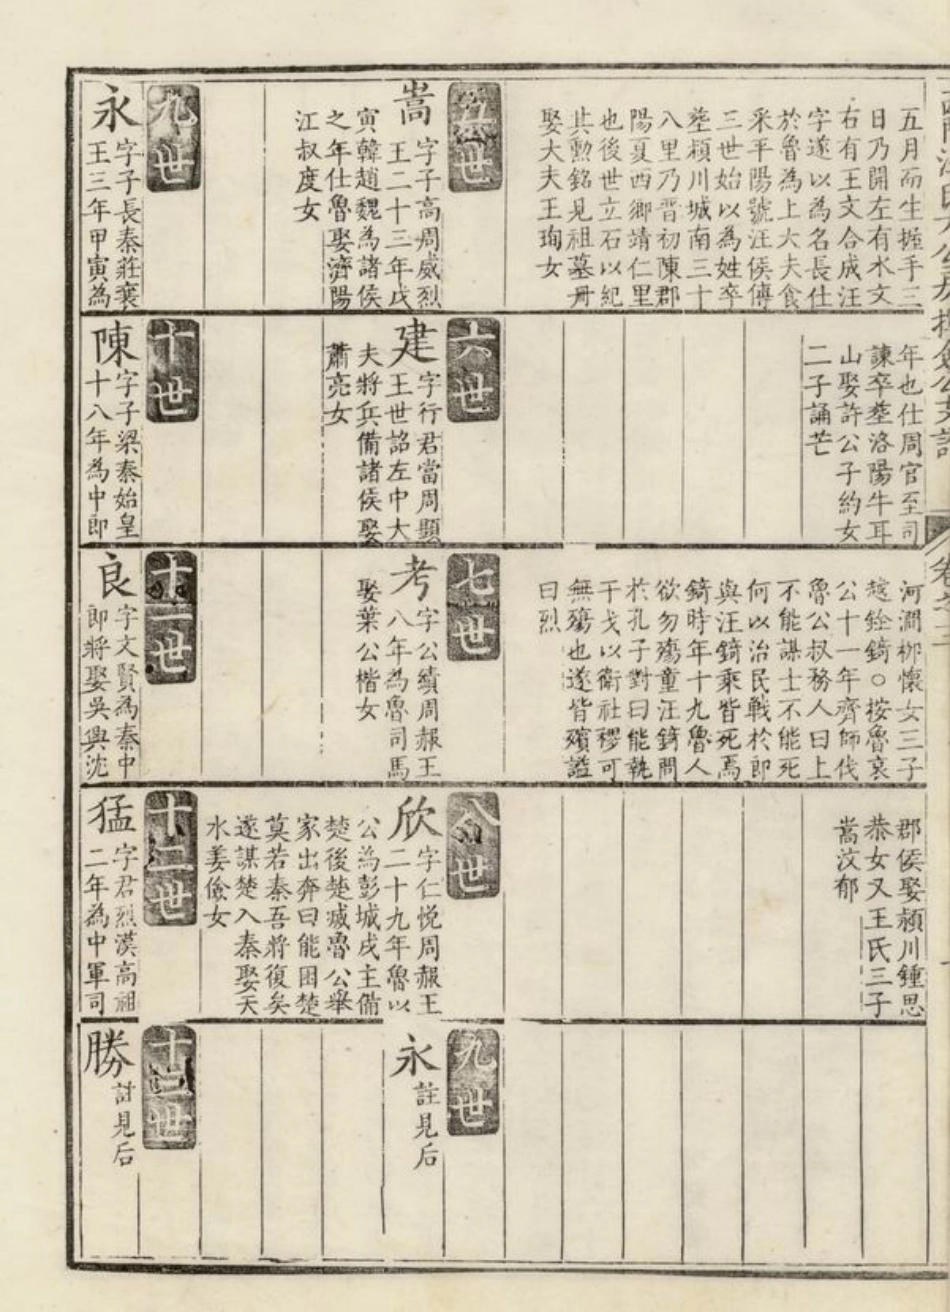 五月而生握手三
日乃開左有水文
右有王文合成汪
字遂以為名長仕
於魯為上大夫食
采平陽號汪侯傳
三世始以為姓卒
塟潁川城南三十
八里乃晋初陳郡
陽夏西鄉靖仁里
也後世立石以紀
其勲銘見祖墓冊
娶大夫王珣女
五世
嵩
字子高周威烈
王二十三年戊
寅韓趙魏為諸侯
之年仕魯娶濟陽
江叔度女
九世
永
字子長秦莊襄
王三年甲寅為
年也仕周官至司
諫卒塟洛陽牛耳
山娶許公子約女
二子誦芒
六世
建
字行君當周顯
王世詔左中大
夫將兵備諸侯娶
蕭亮女
十世
陳
字子梁秦始皇
十八年為中郎
河澗栁懷女三子
銓錡○按魯哀
公十一年齊師伐
魯公叔務人曰上
不能謀士不能死
何以治民戰於郎
與汪錡乘皆死焉
錡時年十九魯人
欲勿殤童汪錡問
於孔子對曰能執
干戈以衛社稷可
無殤也遂皆殯諡
曰烈
七世
考
字公績周赧王
八年為魯司馬
娶葉公楷女
十一世
良
字文賢為秦中
郎將娶吳興沈
郡侯娶潁川鍾思
恭女又王氏三子
嵩汶郁
八世
欣
字仁悅周赧王
二十九年魯以
公為彭城戍主備
楚後楚滅魯公舉
家出奔曰能困楚
莫若秦吾將復矣
遂謀楚入秦娶天
水姜儉女
十二世
猛
字君烈漢高祖
二年為中軍司
九世
永
註見后
十三世
勝
註見后